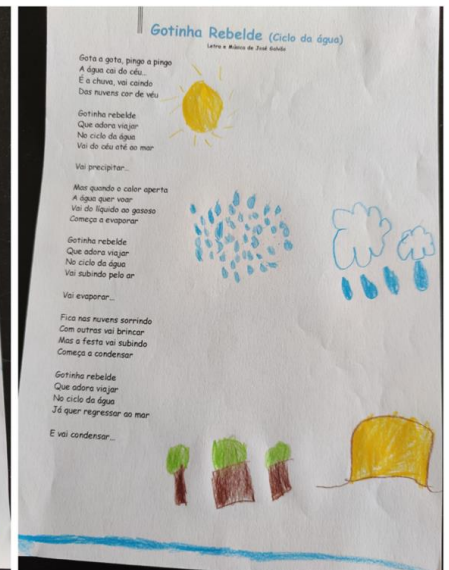 Gotinha Rebelde (Ciclo da água)
Letra e Música de José Galvão
Gota a gota, pingo a pingo
A água cai do céu...
É a chuva, vai caindo
Das nuvens cor de véu
Gotinha rebelde
Que adora viajar
No ciclo da água
Vai do céu até ao mar
Vai precipitar...
Mas quando o calor aperta
A água quer voar
Vai do líquido ao gasoso
Começa a evaporar
Gotinha rebelde
Que adora viajar
No ciclo da água
Vai subindo pelo ar
Vai evaporar...
Fica nas nuvens sorrindo
Com outras vai brincar
Mas a festa vai subindo
Começa a condensar
Gotinha rebelde
Que adora viajar
No ciclo da água
Já quer regressar ao mar
E vai condensar...